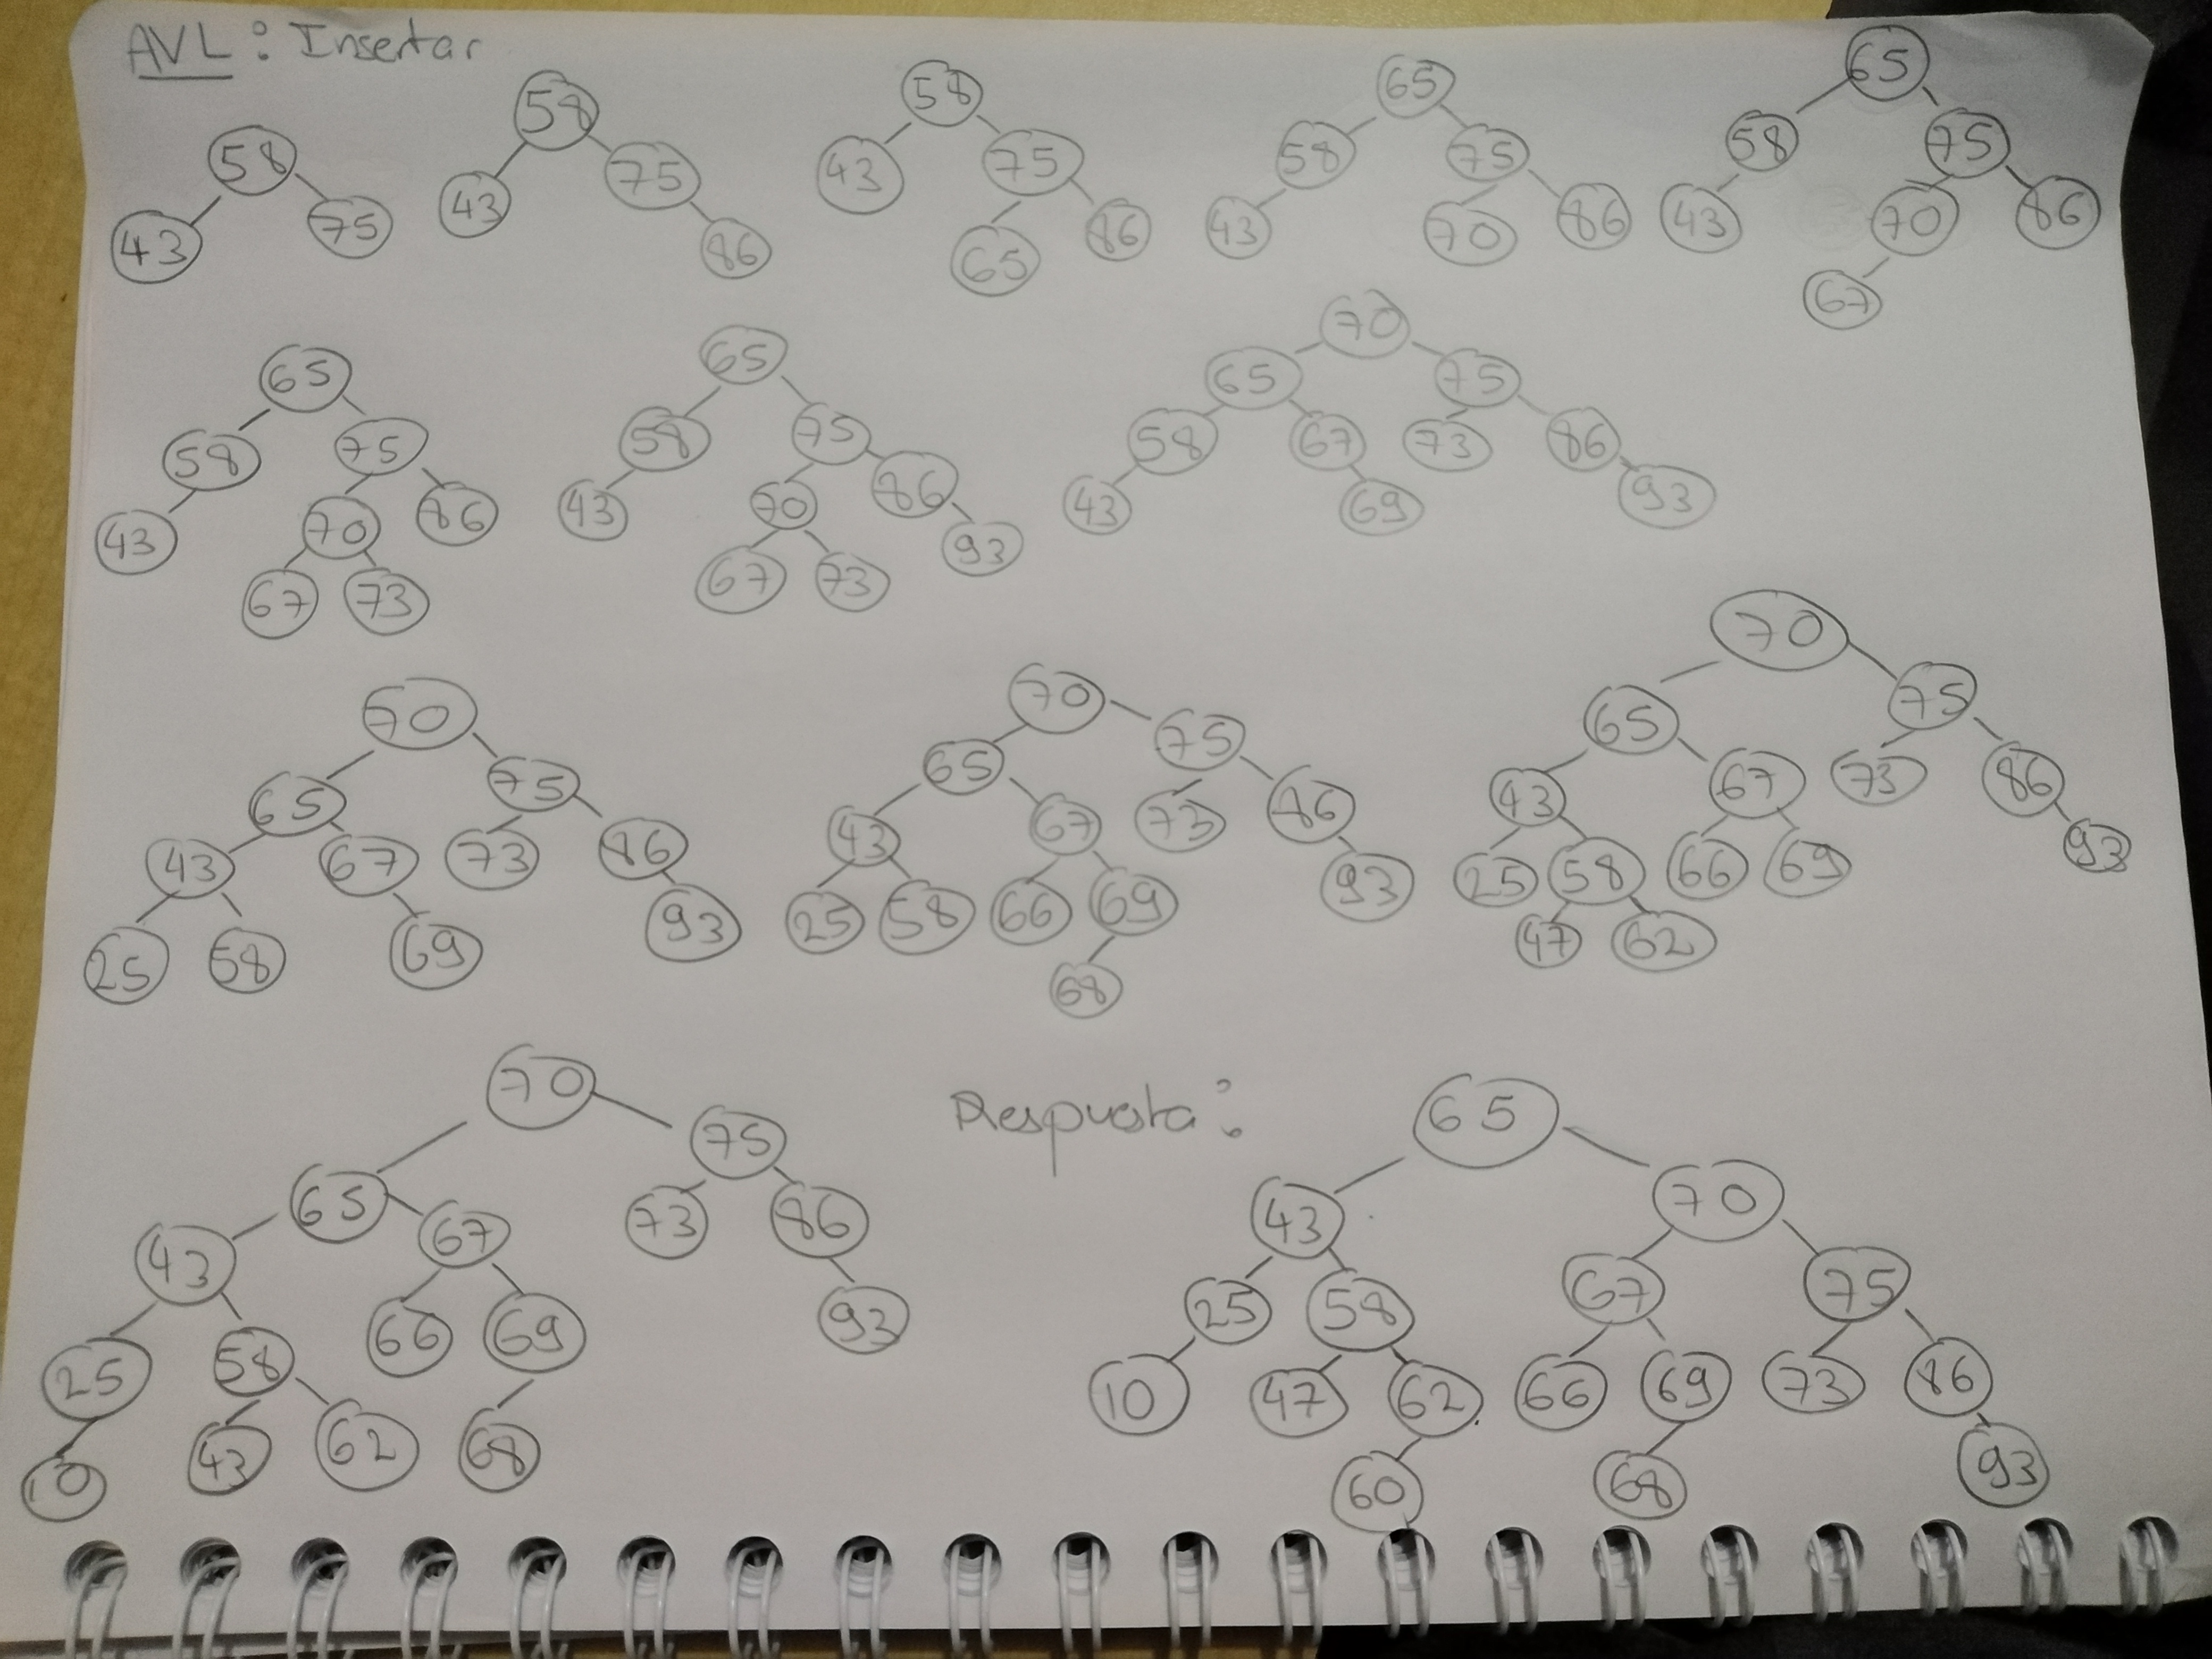 AVL: Insertar
58
43 75
58
43 75
86
58
43 75
65 86
65
58 75
43 70 86
65
58 75
43 70 86
67
65
58 75
43 70 86
67 73
65
58 75
43 70 86
67 73 93
70
65 75
58 67 73 86
43 69 93
70
65 75
43 67 73 86
25 58 69 93
70
65 75
43 67 73 86
25 58 66 69 93
68
70
65 75
43 67 73 86
25 58 66 69 93
47 62
70
65 75
43 67 73 86
25 58 66 69 93
10 43 62 68
Respuesta:
65
43 70
25 58 67 75
10 47 62 66 69 73 86
60 68 93